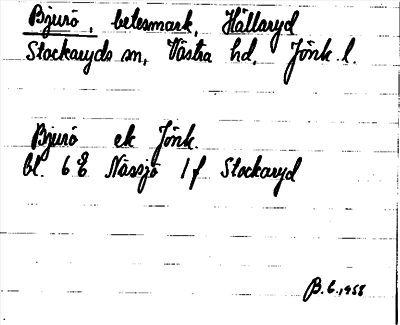 Bjurö, betesmark, Hällaryd
Stockaryds sn, Västra hd, Jönk. l.
Bjurö ek Jönk.
bl. 6 E Nässjö 1 f Stockaryd
B. G. 1958